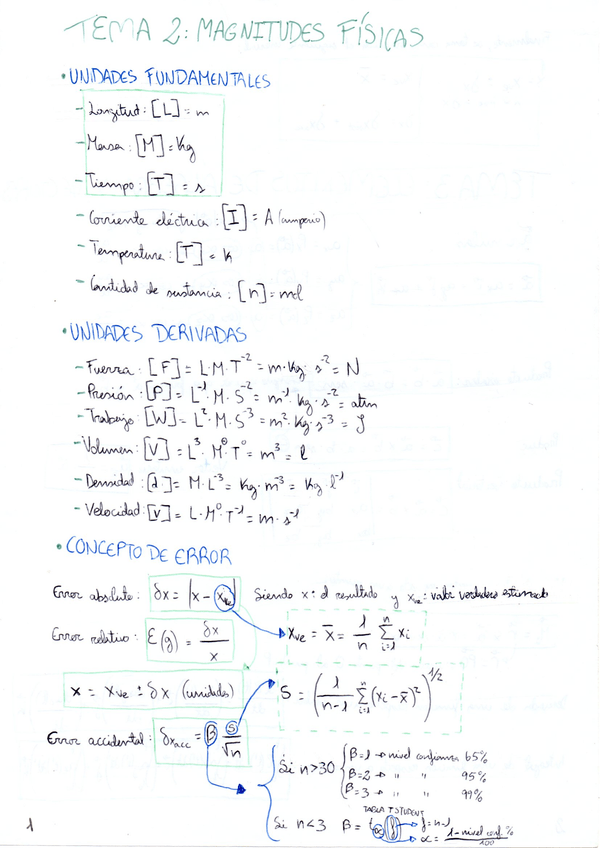 TEMA 2: MAGNITUDES FÍSICAS
• UNIDADES FUNDAMENTALES
- Longitud: [L] = m
- Masa: [M] = Kg
- Tiempo: [T] = s
- Corriente eléctrica: [I] = A (amperio)
- Temperatura: [T] = k
- Cantidad de sustancia: [n] = mol
• UNIDADES DERIVADAS
- Fuerza: [F] = L·M·T⁻² = m·Kg·s⁻² = N
- Presión: [P] = L⁻¹·M·S⁻² = m⁻¹·Kg·s⁻² = atm
- Trabajo: [W] = L²·M·S⁻³ = m²·Kg·s⁻³ = J
- Volumen: [V] = L³·M⁰T⁰ = m³ = l
- Densidad: [d] = M·L⁻³ = Kg·m⁻³ = Kg·l⁻¹
- Velocidad: [v] = L·M⁰·T⁻¹ = m·s⁻¹
• CONCEPTO DE ERROR
Error absoluto: δx = |x - x_ve| Siendo x: el resultado y x_ve: valor verdadero estimado
Error relativo: E(g) = δx / x
x_ve = x̄ = 1/n ∑_{i=1}^{n} xi
x = x_ve ± δx (unidades)
S = (1/(n-1) ∑_{i=1}^{n} (xi - x̄)²)^{1/2}
Error accidental: δx_acc = β S/√n
Si n>30 { β=1 → nivel confianza 65%
β=2 → " " 95%
β=3 → " " 99%
TABLA T STUDENT
Si n<3 β = t_α(f) → f = n-1
→ α = 1-nivel conf.% / 100
1